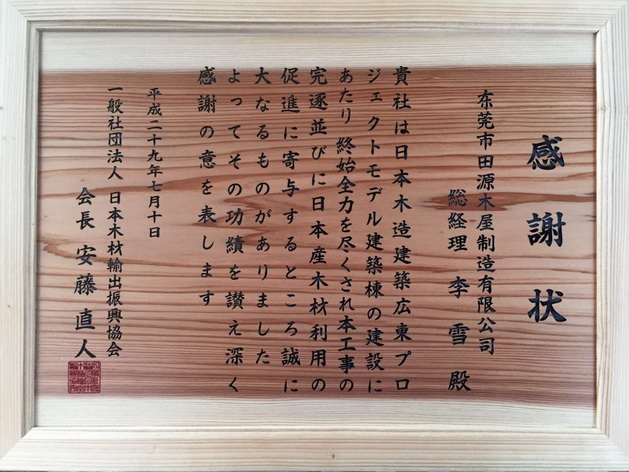 感謝状
东莞市田源木屋制造有限公司
総経理 李雪 殿
貴社は日本木造建築広東プロ
ジェクトモデル建築棟の建設に
あたり 終始全力を尽くされ本工事の
完遂並びに日本産木材利用の
促進に寄与するところ誠に
大なるものがありました
よってその功績を讃え深く
感謝の意を表します
平成二十九年七月十日
一般社団法人 日本木材輸出振興協会
会長 安藤直人